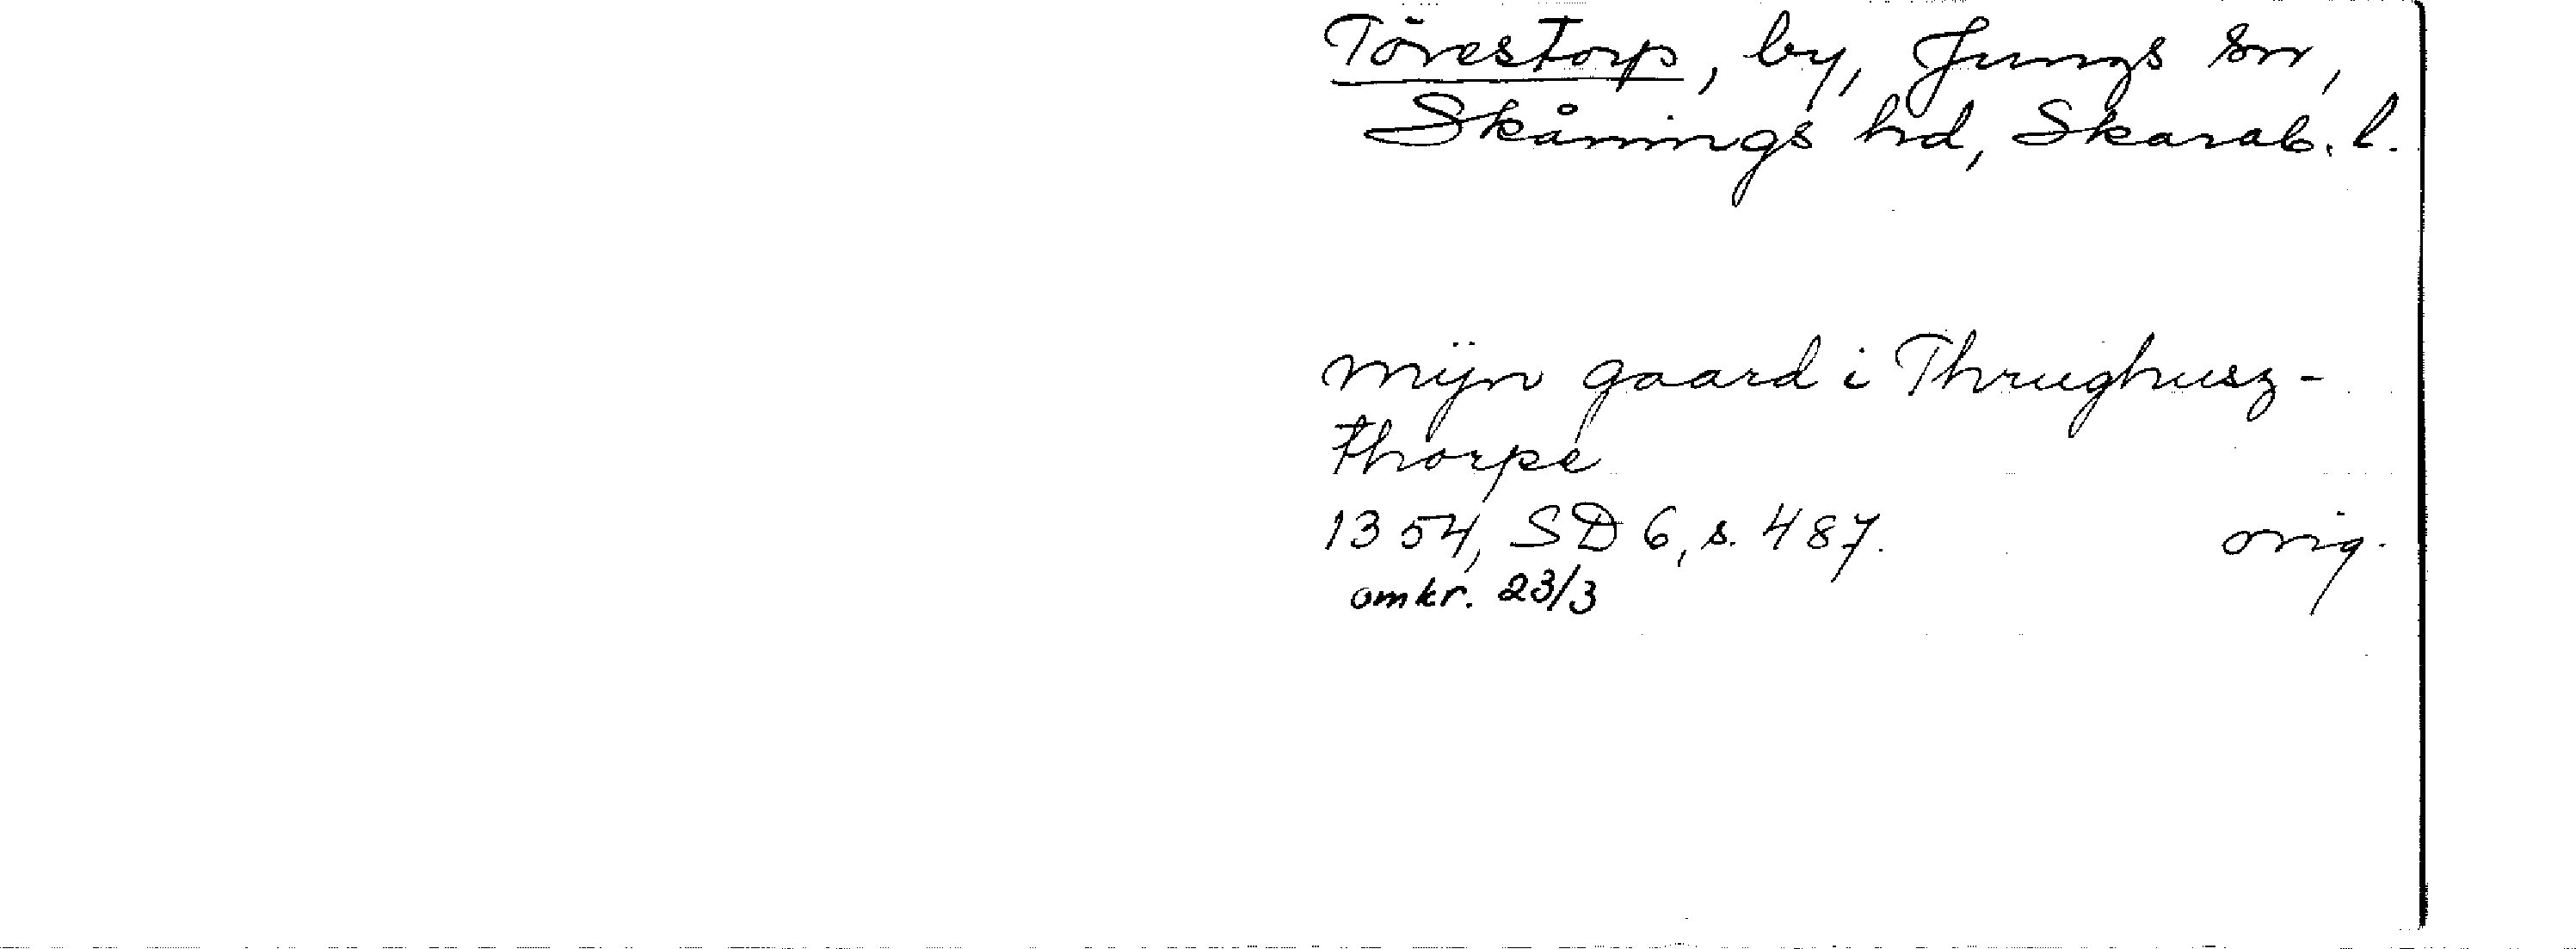 Törestorp, by, Jungs sn,
Skånings hd, Skarab. l.
mijn gaard i Thrughusz-
thorpe
1354, SD 6, s. 487. orig.
omkr. 23/3